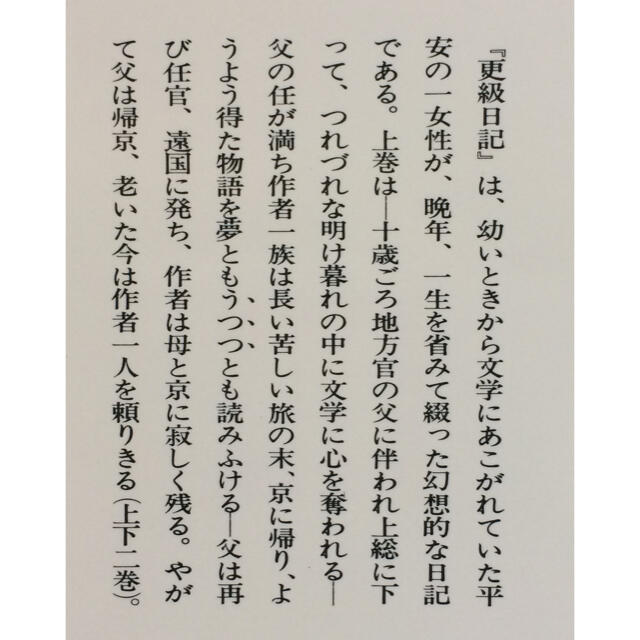 『更級日記』は、幼いときから文学にあこがれていた平
安の一女性が、晩年、一生を省みて綴った幻想的な日記
である。上巻は―十歳ごろ地方官の父に伴われ上総に下
って、つれづれな明け暮れの中に文学に心を奪われる―
父の任が満ち作者一族は長い苦しい旅の末、京に帰り、よ
うよう得た物語を夢ともうつつとも読みふける―父は再
び任官、遠国に発ち、作者は母と京に寂しく残る。やが
て父は帰京、老いた今は作者一人を頼りきる(上下二巻)。